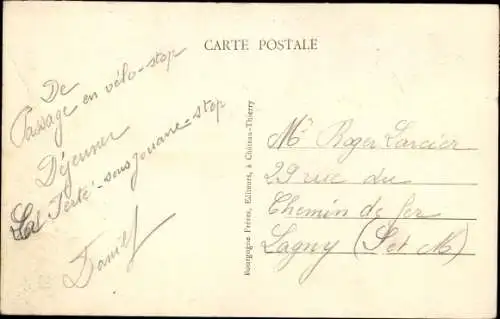 CARTE POSTALE
De
Passage en vélo-stop
Déjeuner
La Ferté-sous-Jouarre-stop
Daniel
Bourgogne Frères, Editeurs, à Château-Thierry
Mr Roger Larcier
29 rue du
Chemin de fer
Lagny (S et M)